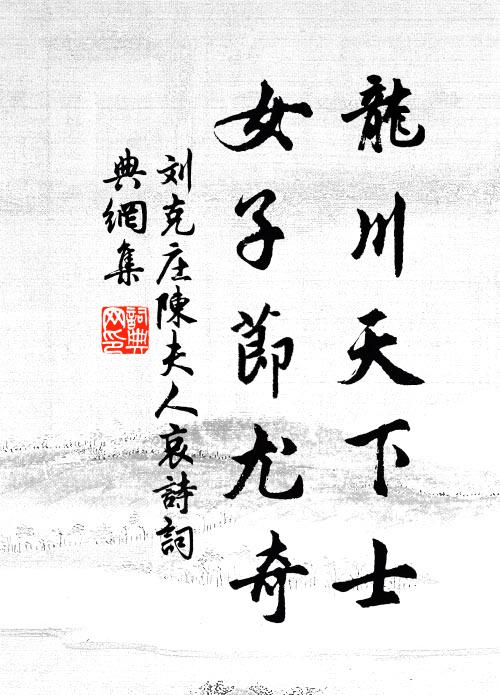 龍川天下士
女子節尤奇
刘克庄陳夫人哀詩詞
典網集
詞典网印